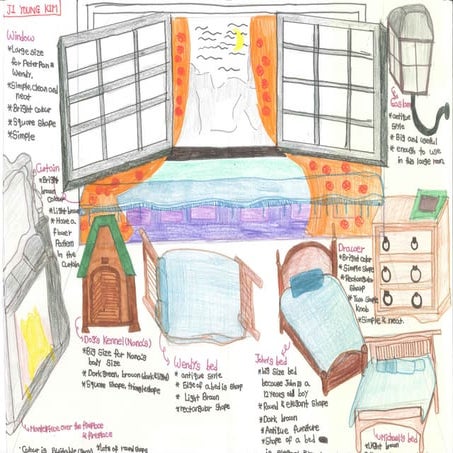 JI YOUNG KIM
Window
*Large size
for Peter Pan &
Wendy.
*Simple, clean and
neat
*Bright colour
*Square shape
*Simple
Curtain
*Bright
colour
*Light brown
*Have a
flower
pattern
in the
curtain
*antique
style
*Big and useful
*enough to use
in this large room.
Dog's Kennel (Nana's)
*Big size for Nana's
body size
*Dark green, brown
*Square shape, triangle shape
Wendy's bed
*antique style
*Size of a bed is
*Light Brown
*rectangular shape
John's bed
*Big size
because John is a
12 years old boy
*Round & elegant shape
*Dark brown
*Antique furniture
*Shape of a bed
Drawer
*Bright colour
*Simple shape
*Rectangular
shape
*Two
knob
*Simple & neat.
Michael's bed
*Light brown
Mantelpiece over the fireplace
& fireplace
*Colour is
*Lots of round shape